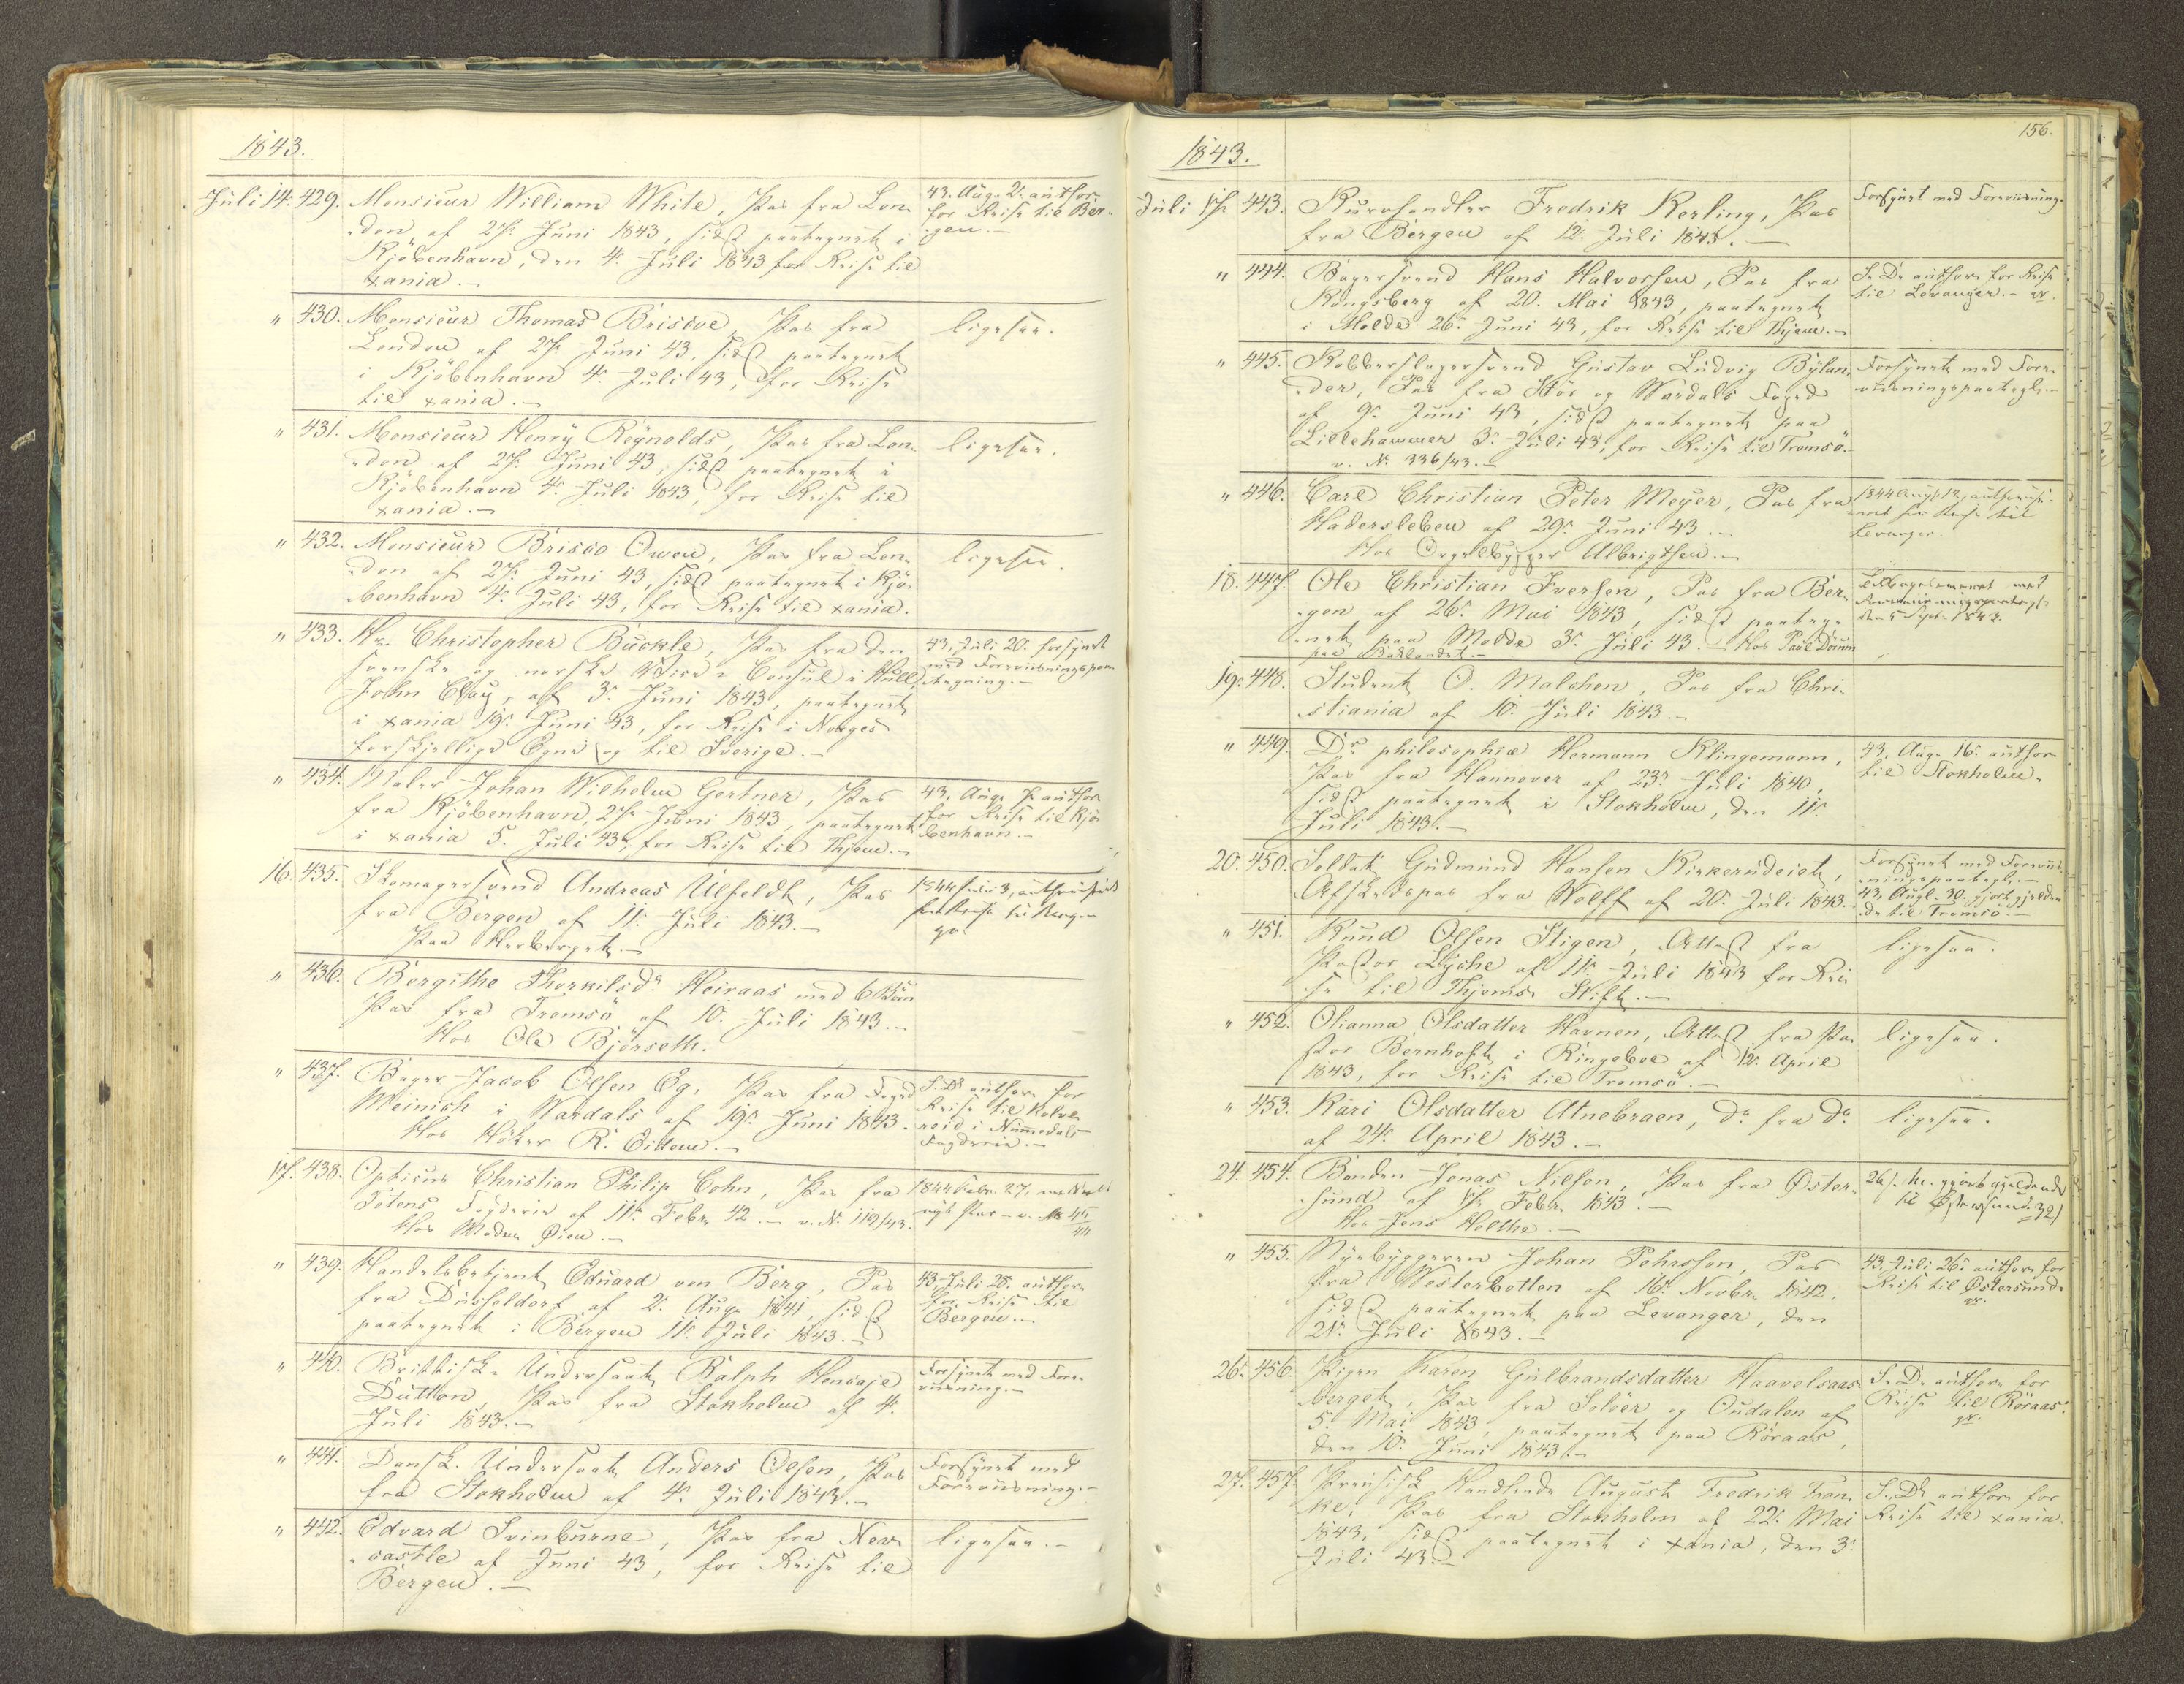 1843.
Juli 14. 429. Monsieur William White, Pas fra Lon-
don af 27. Juni 1843, sidst paategnet i
Kjöbenhavn, den 4. Juli 1843 for Reise til
xania.-
43. Aug. 2. author.
for Reise til Ber-
gen.-
" 430. Monsieur Thomas Briscoe, Pas fra
London af 27. Juni 43, sidst paategnet
i Kjöbenhavn 4. Juli 43, for Reise
til xania.-
ligesaa.
" 431. Monsieur Henry Reynolds, Pas fra Lon-
don af 27. Juni 43, sidst paategnet i
Kjöbenhavn 4. Juli 1843, for Reise til
xania.-
ligesaa.
" 432. Monsieur Brisco Owen, Pas fra Lon-
don af 27. Juni 43, sidst paategnet i Kjö-
benhavn 4. Juli 43, for Reise til xania.
ligesaa.
" 433. Hr. Christopher Buckle, Pas fra den
svenske og norske Vice Consul i Hull,
John Clay, af 3. Juni 1843, paategnet
i xania 19. Juni 43, for Reise i Norges
forskjellige Egne og til Sverige.-
43, Juli 20. forsynet
med Foreviisningspaa-
tegning.-
" 434. Maler Johan Wilhelm Gertner, Pas
fra Kjöbenhavn, 27. Juni 1843, paategnet
i xania 5. Juli 43, for Reise til Thjem.-
43, Aug. 7. author.
for Reise til Kjö-
benhavn.-
16. 435. Skomagersvend Andreas Ulfeldt, Pas
fra Bergen af 11. Juli 1843.-
Paa Herberget.-
1844 Juli 3, authoriseret
for Reise til Bergen
" 436. Bergithe Thorkilsdr. Heiraas med 6 Børn
Pas fra Tromsö af 10. Juli 1843.-
Hos Ole Björseth.
" 437. Bager Jacob Olsen Eg, Pas fra Foged
Meinich i Værdals af 19. Juni 1843.
Hos Höker R. Eidem.-
S. D. author. for
Reise til Kolve-
reid i Nummedals
Fogderie.-
17. 438. Opticus Christian Philip Cohn, Pas fra
Totens Fogderie af 11. Febr. 42.- v. N. 119/43.
Hos Madm Øien.-
1844 Febr. 27, meddeelt
nyt Pas - v. No 45/44
" 439. Handelsbetjent Eduard von Berg, Pas
fra Düsseldorf af 2. Aug. 1841, sidst
paategnet i Bergen 11. Juli 1843.-
43. Juli 28. author.
for Reise til
Bergen.-
" 440. Brittisk Undersaat Ralph Heneaje
Dutton, Pas fra Stokholm af 4.
Juli 1843.-
Forsynet med Fore-
viisning.-
" 441. Dansk Undersaat Anders Olsen, Pas
fra Stokholm af 4. Juli 1843.-
Forsynet med
Foreviisning.-
" 442. Edvard Svinburne, Pas fra New-
castle af Juni 43, for Reise til
Bergen.-
ligesaa.-
156.
1843.
Juli 17. 443. Kurvhandler Fredrik Kesling, Pas
fra Bergen af 12. Juli 1843.-
Forsynet med Foreviisning.
" 444. Bagersvend Hans Halvorsen, Pas fra
Kongsberg af 20. Mai 1843, paategnet
i Molde 26. Juni 43, for Reise til Thjem.-
S. D. author. for Reise
til Levanger.-
" 445. Kobberslagersvend Gustav Ludvig Bylan-
der, Pas fra Stör og Værdals Foged
af 9. Juni 43, sidst paategnet paa
Lillehammer 3. Juli 43, for Reise til Tromsö.-
v. N. 336/43.-
Forsynet med Fore-
viisningspaategn.-
" 446. Carl Christian Peter Meyer, Pas fra
Hadersleben af 29. Juni 43.-
Hos Orgelbygger Albrigtsen.-
1844 Aug. 12, authorise-
ret for Reise til
Levanger.
18. 447. Ole Christian Iversen, Pas fra Ber-
gen af 26. Mai 1843, sidst paateg-
net paa Molde 3. Juli 43.- Hos Paul Doun
paa Baklandet.-
Tilbageleveret med
Foreviisningspaategn.
den 5 Sept. 1843.
19. 448. Student O. Malchen, Pas fra Chri-
stiania af 10. Juli 1843.-
" 449. Dr. philosophiæ Hermann Klingemann,
Pas fra Hannover af 23. Juli 1840,
sidst paategnet i Stokholm, den 11.
Juli 1843.-
43, Aug. 16. author.
til Stokholm.
20. 450. Soldat Gudmund Hansen Kirkerudeiet,
Afskedspas fra Wolff af 20. Juli 1843.-
Forsynet med Foreviis-
ningspaategn.-
43, Aug. 30. gjort gjelden-
de til Tromsö.-
" 451. Knud Olsen Stigen, Attest fra
Pastor Lyche af 11. Juli 1843 for Rei-
se til Thjems Stift.-
ligesaa.
" 452. Olianna Olsdatter Havnen, Attest fra Pa-
stor Bernhoft i Ringeboe af 12. April
1843, for Reise til Tromsö.-
ligesaa.
" 453. Kari Olsdatter Atnebraen, Do fra Do
af 24. April 1843.-
ligesaa.
24. 454. Bonden Jonas Nilsen, Pas fra Øster-
sund af 17. Febr. 1843.-
Hos Jens Holthe.-
26/7 h. gjort gjeldende
til Østersund. 32)
" 455. Nyebyggeren Johan Pehrssen, Pas
fra Westerbotten af 16. Novbr. 1842,
sidst paategnet paa Levanger, den
21. Juli 1843.-
43. Juli 26. author. for
Reise til Østersund.
26. 456. Pigen Karen Gulbrandsdatter Haavelsaas-
berget, Pas fra Solöer og Oudalen af
5. Mai 1843, paategnet paa Röraas,
den 10. Juni 1843.-
S. D. author. for
Reise til Röraas.
27. 457. Preusisk Handlende August Fredrik Fran-
ke, Pas fra Stokholm af 22. Mai
1843, sidst paategnet i xania, den 3.
Juli 43.-
S. D. author. for
Reise til xania.